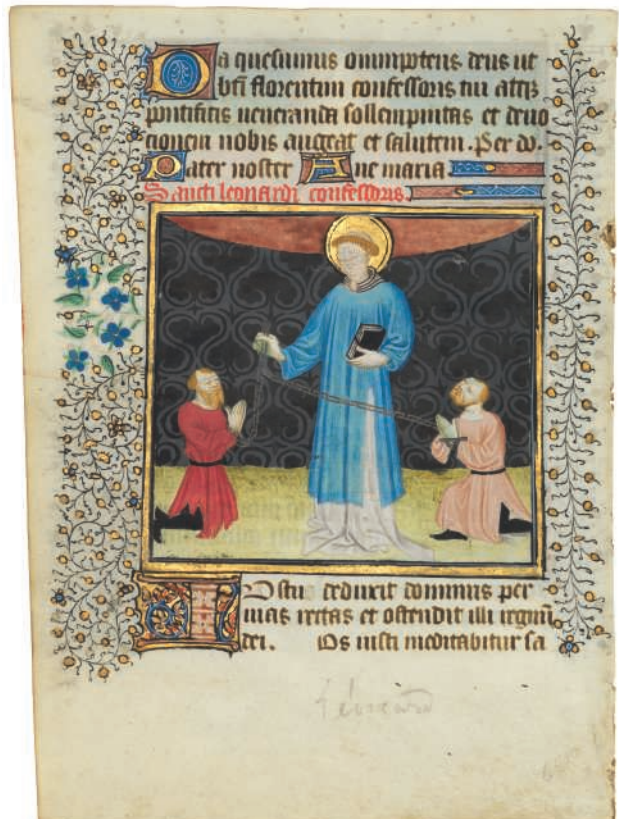 Da quesumus omnipotens deus ut
bti florentini confessoris tui atqz
pontificis ueneranda sollempnitas et deuo
cionem nobis augeat et salutem. Per do.
Pater noster Aue maria
Sancti leonardi confessoris.
Iustu deduxit dominus per
uias rectas et ostendit illi regnu
dei. Os iusti meditabitur sa